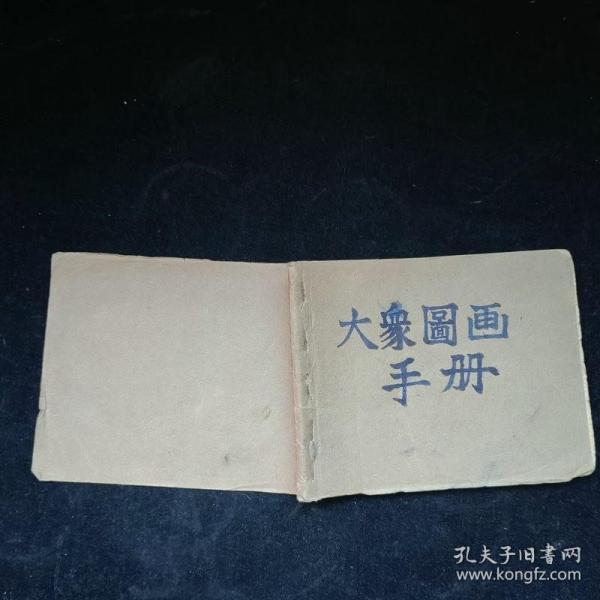 大衆圖画
手册
孔夫子旧書网
www.kongfz.com